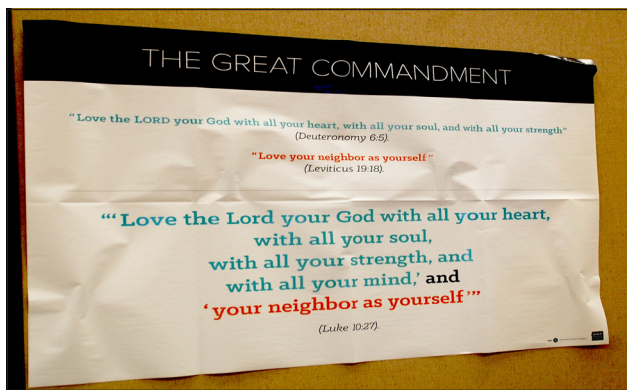 THE GREAT COMMANDMENT
“Love the LORD your God with all your heart, with all your soul, and with all your strength”
(Deuteronomy 6:5).
“Love your neighbor as yourself”
(Leviticus 19:18).
“‘Love the Lord your God with all your heart,
with all your soul,
with all your strength, and
with all your mind,’ and
‘your neighbor as yourself’”
(Luke 10:27).